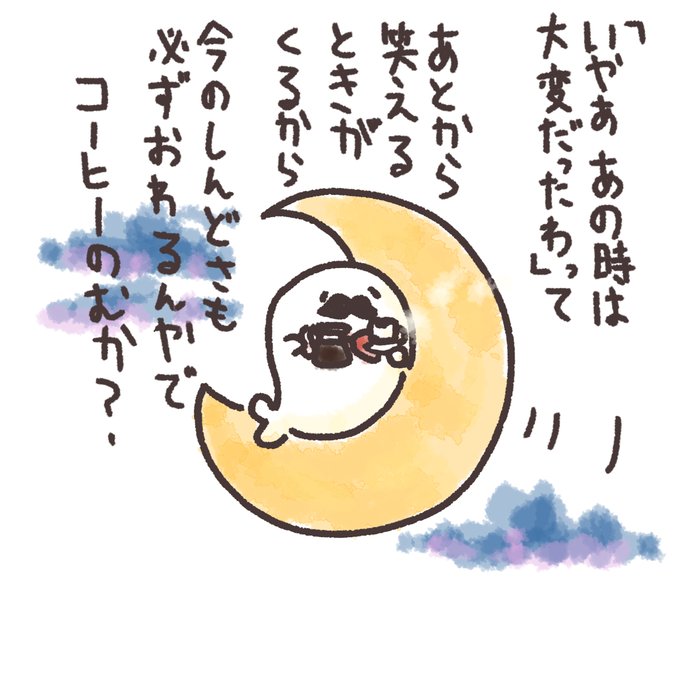 「いやぁ あの時は
大変だったわ」って
あとから
笑える
ときが
くるから
今のしんどさも
必ずおわるんやで
コーヒーのむか？